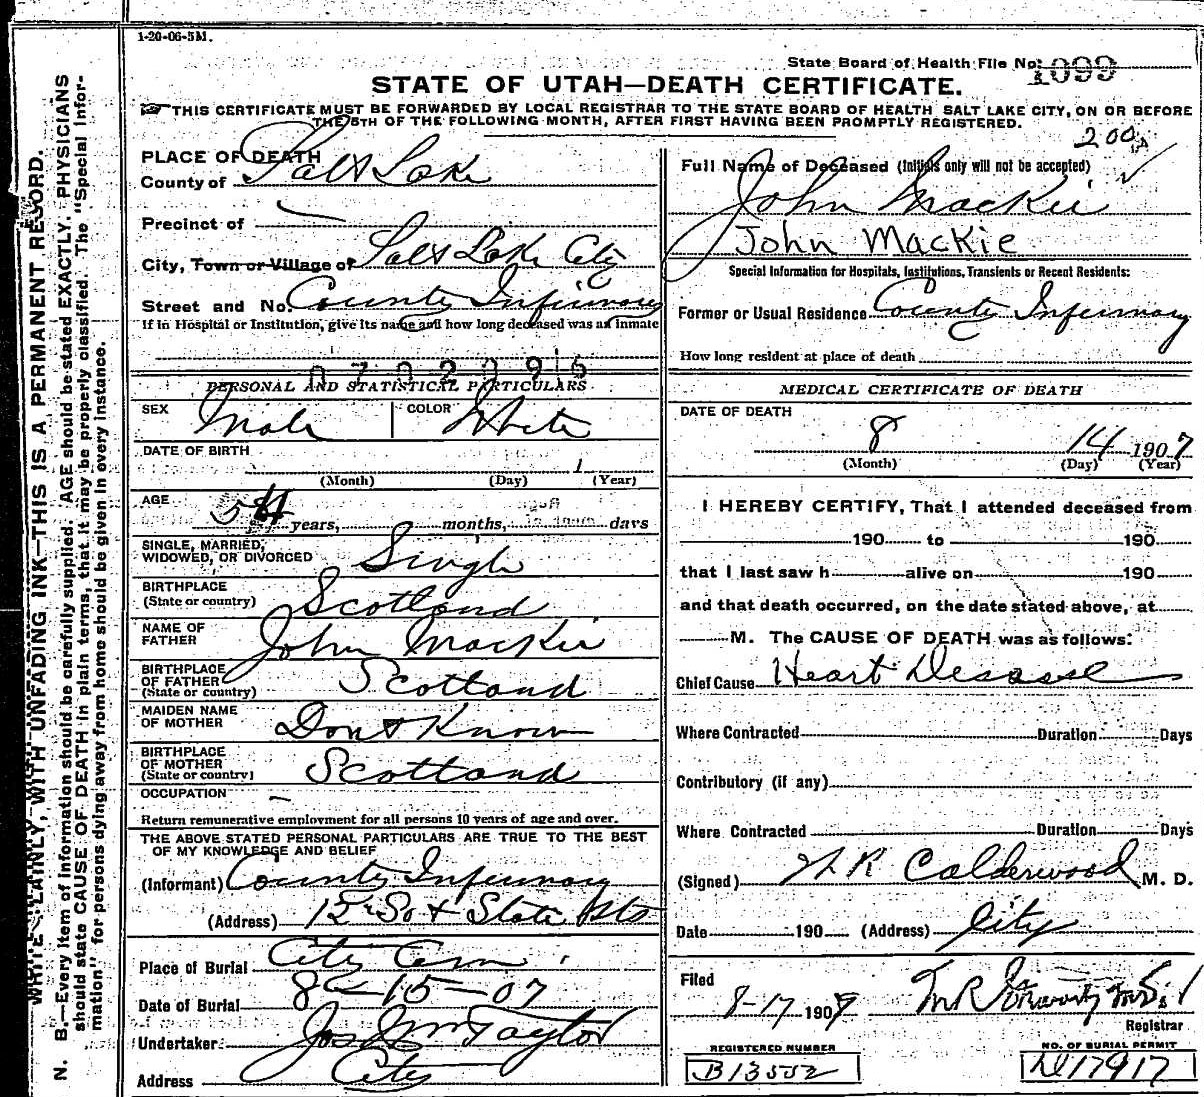 1-20-06-5M.
State Board of Health File No. 1099
STATE OF UTAH—DEATH CERTIFICATE.
THIS CERTIFICATE MUST BE FORWARDED BY LOCAL REGISTRAR TO THE STATE BOARD OF HEALTH SALT LAKE CITY, ON OR BEFORE
THE 5TH OF THE FOLLOWING MONTH, AFTER FIRST HAVING BEEN PROMPTLY REGISTERED.
WRITE PLAINLY, WITH UNFADING INK—THIS IS A PERMANENT RECORD.
N. B.—Every item of Information should be carefully supplied. AGE should be stated EXACTLY. PHYSICIANS
should state CAUSE OF DEATH in plain terms, that it may be properly classified. The "Special Infor-
mation" for persons dying away from home should be given in every instance.
PLACE OF DEATH
County of Salt Lake
Precinct of
City, Town or Village of Salt Lake City
Street and No. County Infirmary
If in Hospital or Institution, give its name and how long deceased was an inmate
0702396
PERSONAL AND STATISTICAL PARTICULARS
SEX Male COLOR White
DATE OF BIRTH
(Month) (Day) (Year)
AGE
years, months, days
SINGLE, MARRIED,
WIDOWED, OR DIVORCED Single
BIRTHPLACE
(State or country) Scotland
NAME OF
FATHER John Mackie
BIRTHPLACE
OF FATHER
(State or country) Scotland
MAIDEN NAME
OF MOTHER Dont Know
BIRTHPLACE
OF MOTHER
(State or country) Scotland
OCCUPATION —
Return remunerative employment for all persons 10 years of age and over.
THE ABOVE STATED PERSONAL PARTICULARS ARE TRUE TO THE BEST
OF MY KNOWLEDGE AND BELIEF
(Informant) County Infirmary
(Address) 12 So & State Sts
Place of Burial City Cem
Date of Burial 8-15-07
Undertaker Jos Wm Taylor
Address City
200
Full Name of Deceased (Initials only will not be accepted)
John Mackie
John Mackie
Special Information for Hospitals, Institutions, Transients or Recent Residents:
Former or Usual Residence County Infirmary
How long resident at place of death
MEDICAL CERTIFICATE OF DEATH
DATE OF DEATH
8 14 1907
(Month) (Day) (Year)
I HEREBY CERTIFY, That I attended deceased from
190 to 190
that I last saw h alive on 190
and that death occurred, on the date stated above, at
M. The CAUSE OF DEATH was as follows:
Chief Cause Heart Desease
Where Contracted Duration Days
Contributory (if any)
Where Contracted Duration Days
(Signed) W R Calderwood M. D.
Date 190 (Address) City
Filed
8-17 1907 M.D.
Registrar
REGISTERED NUMBER NO. OF BURIAL PERMIT
B13552 D17917